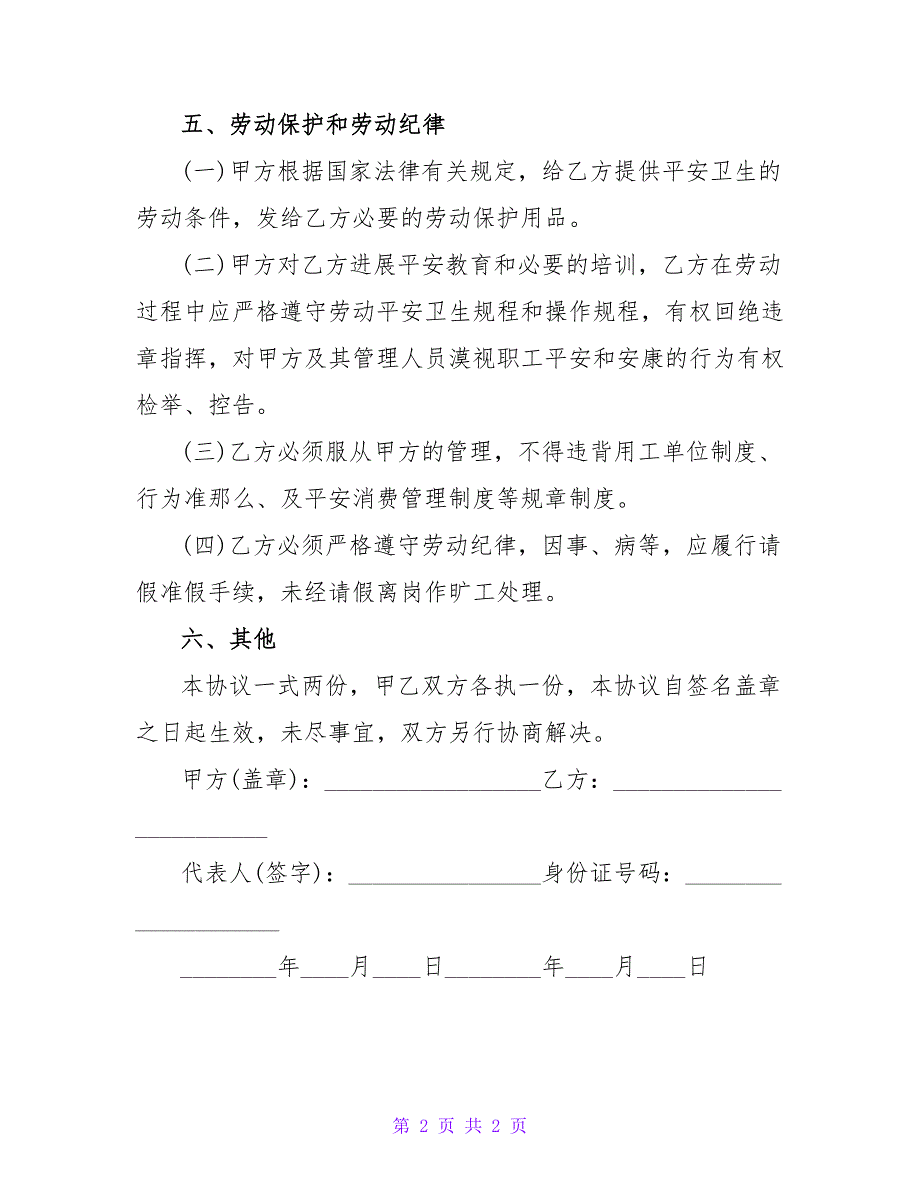 五、劳动保护和劳动纪律
(一)甲方根据国家法律有关规定，给乙方提供平安卫生的
劳动条件，发给乙方必要的劳动保护用品。
(二)甲方对乙方进展平安教育和必要的培训，乙方在劳动
过程中应严格遵守劳动平安卫生规程和操作规程，有权回绝违
章指挥，对甲方及其管理人员漠视职工平安和安康的行为有权
检举、控告。
(三)乙方必须服从甲方的管理，不得违背用工单位制度、
行为准那么、及平安消费管理制度等规章制度。
(四)乙方必须严格遵守劳动纪律，因事、病等，应履行请
假准假手续，未经请假离岗作旷工处理。
六、其他
本协议一式两份，甲乙双方各执一份，本协议自签名盖章
之日起生效，未尽事宜，双方另行协商解决。
甲方(盖章)：__________________乙方：______________
___________
代表人(签字)：________________身份证号码：________
____________
________年____月____日________年____月____日
第 2 页 共 2 页